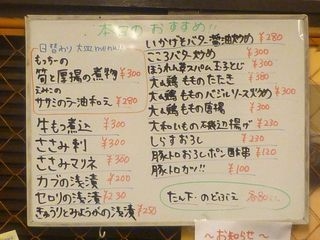 本日のおすすめ!!
日替わり 大皿menu!!
もっちーの
筍と厚揚の煮物 ¥300
ササミのラー油和え ¥280
牛もつ煮込 ¥300
ささみ刺 ¥300
ささみマリネ ¥380
カブの浅漬 ¥200
セロリの浅漬 ¥230
きゅうりとみょうがの浅漬 ¥250
いかげそバター醤油炒め ¥280
こころバター炒め ¥300
ほうれん草スパム玉子とじ ¥300
大山鶏 もものたたき ¥380
大山鶏 もものバジルソース炒め ¥300
大山鶏 ももの唐揚 ¥300
大和いもの磯辺揚げ ¥230
しらすおろし ¥230
豚トロおろしポン酢串 ¥120
豚トロカツ!! ¥100
〜お知らせ〜